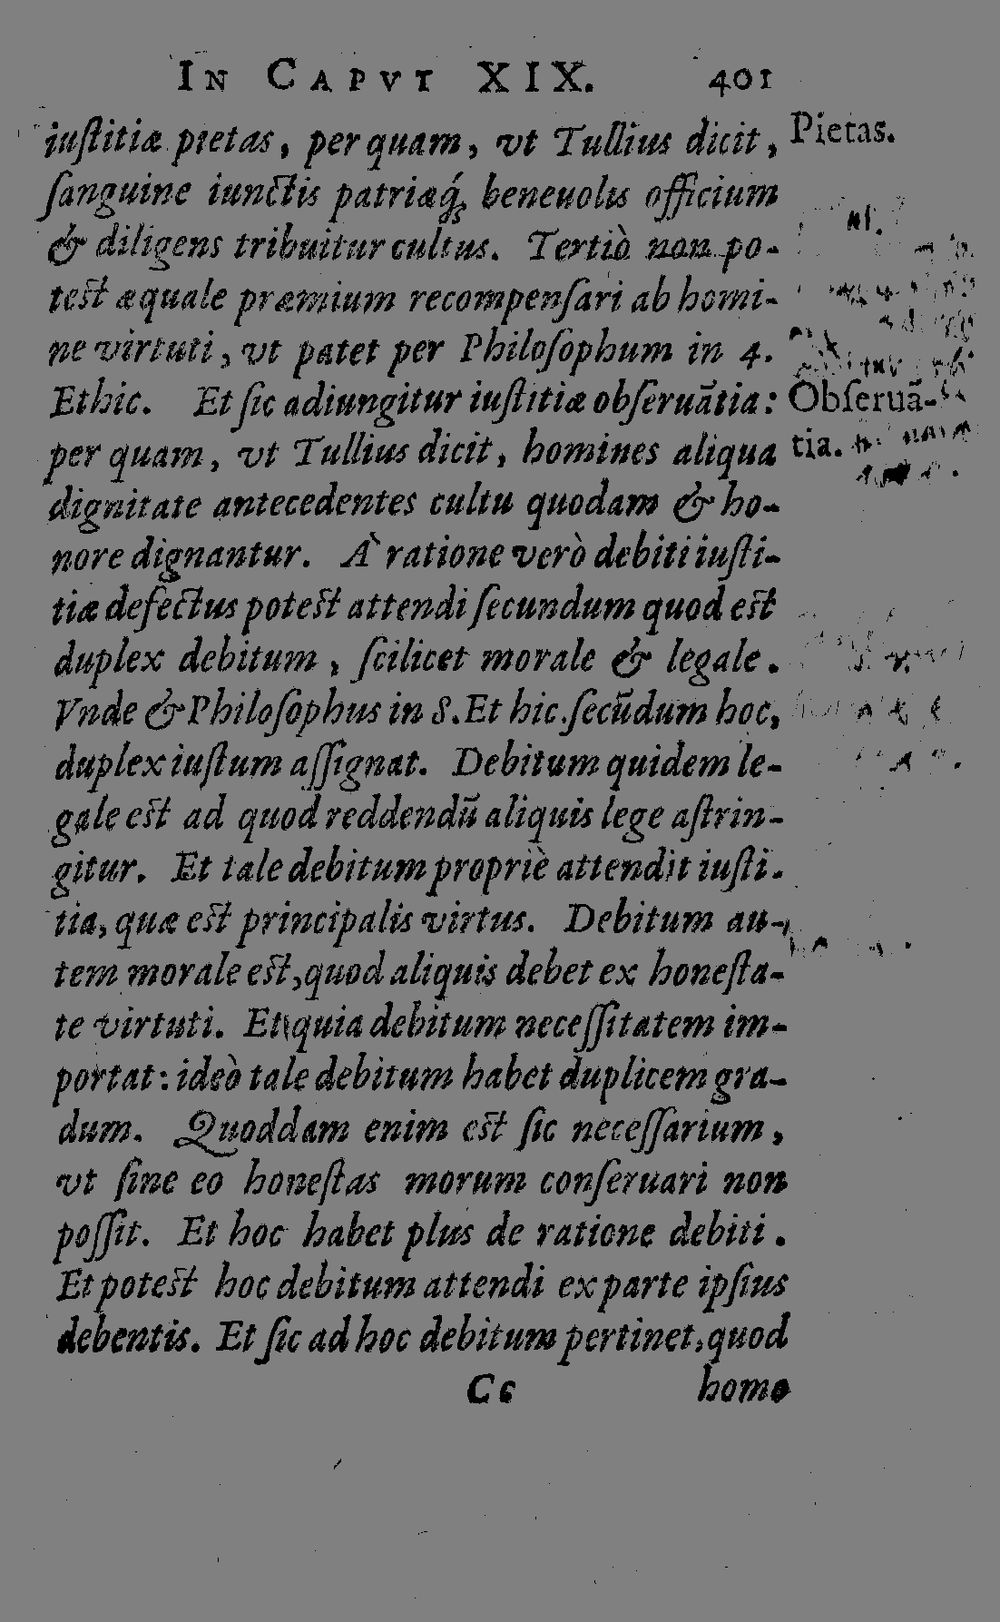 IN CAPVT XIX. 401
iuſtitiæ pietas, per quam, vt Tullius dicit, Pietas.
ſanguine iunctis patriæq́; beneuolis officium
& diligens tribuitur cultus. Tertiò non po-
test æquale præmium recompenſari ab homi-
ne virtuti, vt patet per Philoſophum in 4.
Ethic. Et ſic adiungitur iuſtitiæ obſeruãtia: Obſeruã-
per quam, vt Tullius dicit, homines aliqua tia.
dignitate antecedentes cultu quodam & ho-
nore dignantur. À ratione verò debiti iuſti-
tiæ defectus potest attendi ſecundum quod est
duplex debitum, ſcilicet morale & legale.
Vnde & Philoſophus in 8. Et hic. ſecũdum hoc,
duplex iuſtum aſſignat. Debitum quidem le-
gale est ad quod reddendũ aliquis lege aſtrin-
gitur. Et tale debitum propriè attendit iuſti-
tia, quæ est principalis virtus. Debitum au-
tem morale est, quod aliquis debet ex honeſta-
te virtuti. Et quia debitum neceſſitatem im-
portat: ideò tale debitum habet duplicem gra-
dum. Quoddam enim est ſic neceſſarium,
vt ſine eo honeſtas morum conſeruari non
poſſit. Et hoc habet plus de ratione debiti.
Et potest hoc debitum attendi ex parte ipſius
debentis. Et ſic ad hoc debitum pertinet, quod
Cc homo